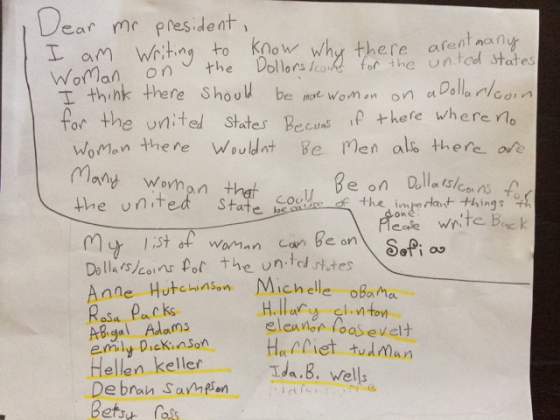 Dear mr president,
I am writing to know why there arent many
woman on the Dollors/coins for the united states
I think there should be more woman on a Dollar/coin
for the united states Becuas if there where no
woman there wouldnt Be Men also there are
Many woman that could Be on Dollars/coins for
the united state because of the important things th
done.
Please write Back
Sofia
My list of woman can Be on
Dollars/coins for the united states
Anne Hutchinson
Rosa Parks
Abigal Adams
emily Dickinson
Hellen keller
Debrah sampson
Betsy Ross
Michelle obama
Hillary clinton
eleanor roosevelt
Harriet tudman
Ida.B. wells